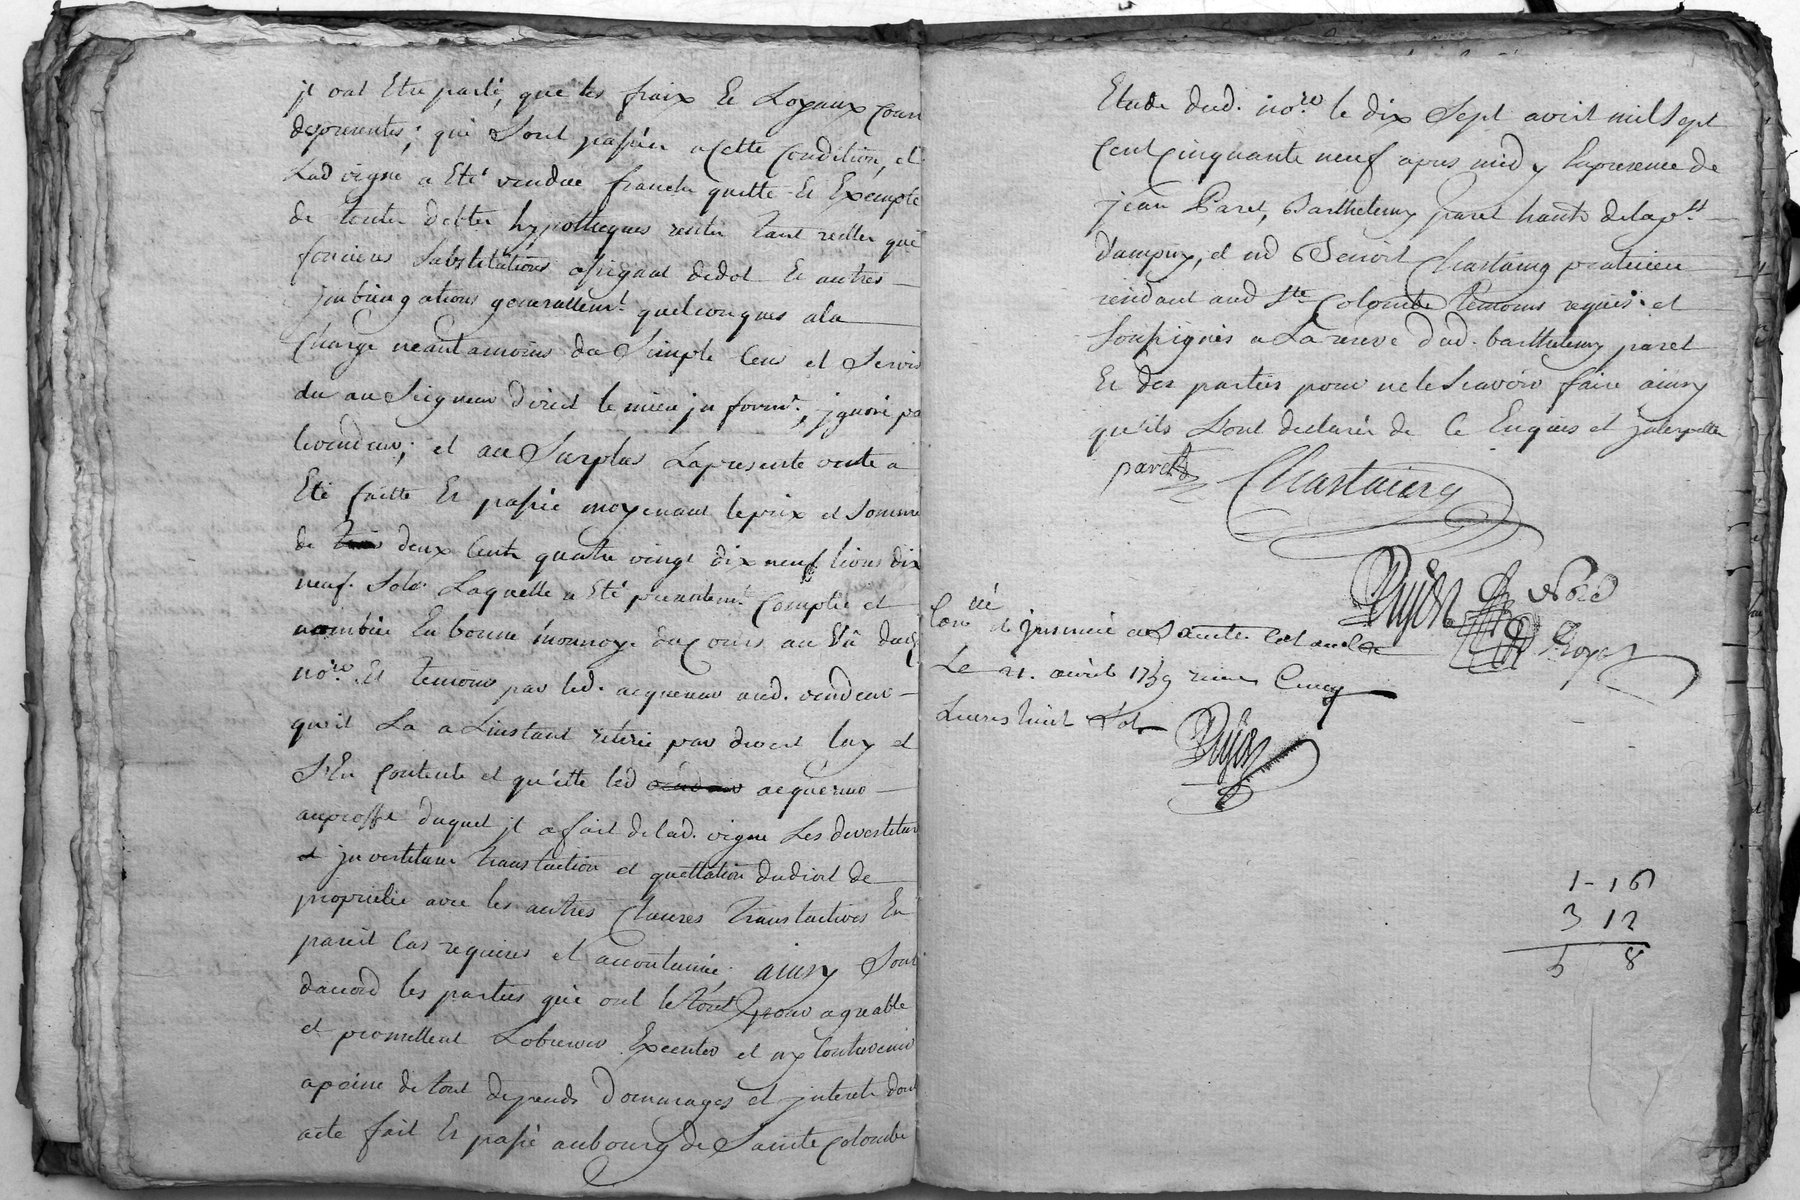 jl ont Etre parlé, que les fraix Et Loyaux cour
des presentes; qui Sont passées a cette condition, et
Lad vigne a Eté vendue franche quitte Et Exempte
de toutes debtes hypotheques rentes tant reelles que
foncieres Substitutions assignaux de dot Et autres
jmbrigations generallemt. quelconques a la
Charge neantamoins du Simple Cens et Servis
du au Seigneur direct le mieux jnformé, jgnoré pa
le vendeur; et au Surplus La presente vente a
Eté faitte Et passée moyenant le prix et Somme
de deux Cents quatre vingt dix neuf livres dix
neuf Sols Laquelle a Eté presentemt. Comptée et
nombrée En bonne monnoye du Cours au vû dud
nore. Et temoins par led. acquereur aud. vendeur
qui La a Linstant retirée par devert luy et
S'En Contente et quitte led acquereur
au proffit duquel jl a fait de lad. vigne Les devestiture
et jnvestiture translaction et quittation du droit de
proprieté avec les autres Clauses translatives En
pareil Cas requises et accoutumée. ainsy Sont
daccord les parties qui ont le tout pour agreable
et promettent Lobserver Executer et ny Contrevenir
a peine de tout depends Dommages et jnterets dont
acte fait Et passé au bourg de Sainte Colombe
Etude dud. nore le dix Sept avril mil Sept
Cent Cinquante neuf apres midy En presence de
jean Paret, Barthelemy paret hants de la psse
dampuy, et md Benoit Chastaing praticien
residant aud Ste Colombe temoins requis et
Soussignés a La reserve dud. barthelemy paret
Et des parties pour ne le Scavoir faire ainsy
qu'ils Sont declarés de Ce Enquis et jnterpellés
paret Chastaing
Pujol Nore
Royal
Con. né de presence a Sainte Colombe
Le 21. avril 1759 reçu Cinq
Livres huit Sols
Pujol
1-16
3 12
5 8